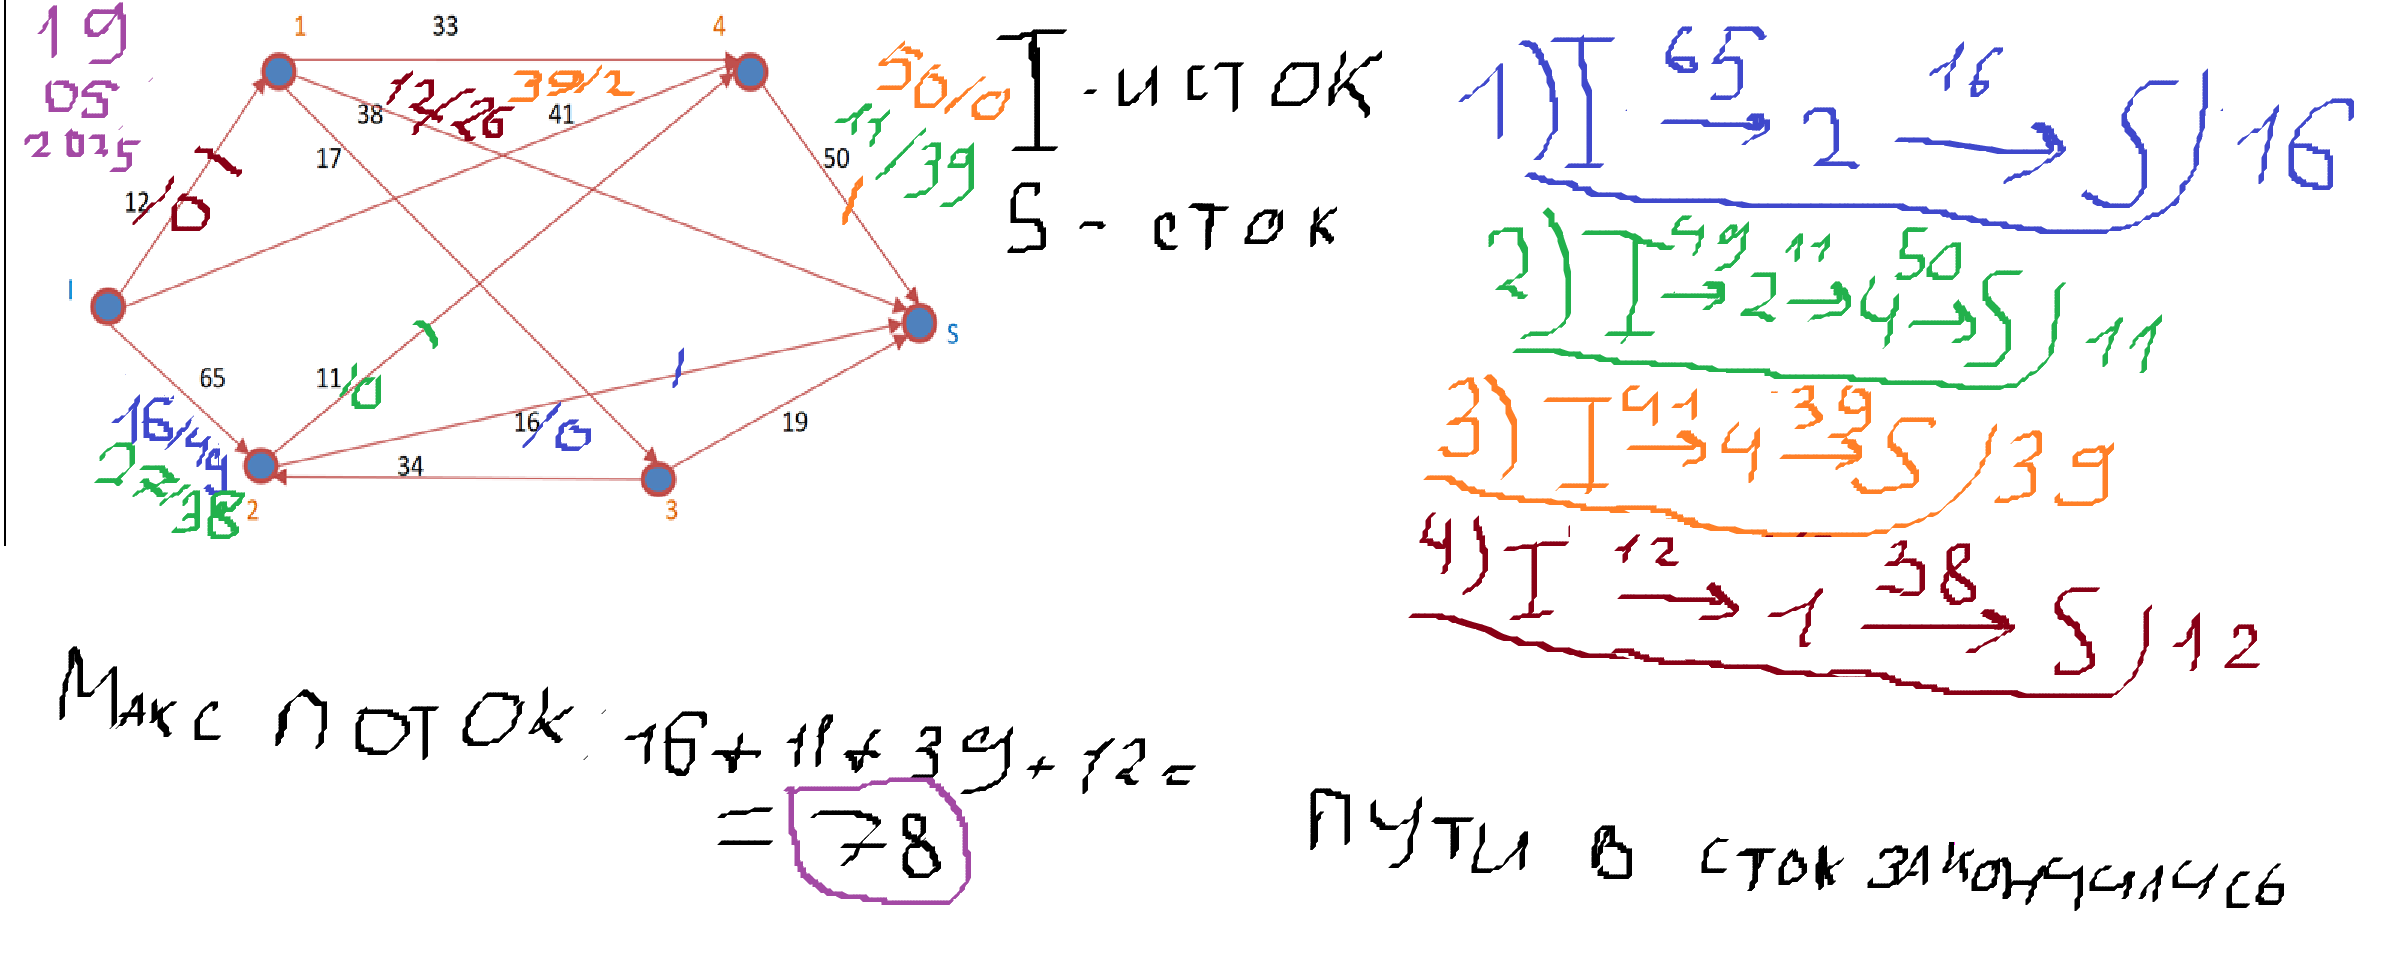 19
05
2025
1
33
4
38
12/26
39/2
41
50/0
11/39
17
50
12/0
I
S
65
11/0
16/49
27/38
16/0
19
34
2
3
I - исток
S - сток
1) I 65→ 2 16→ S / 16
2) I 49→ 2 11→ 4 50→ S / 11
3) I 41→ 4 39→ S / 39
4) I 12→ 1 38→ S / 12
Макс поток: 16+11+39+12=
=78
Пути в сток закончились